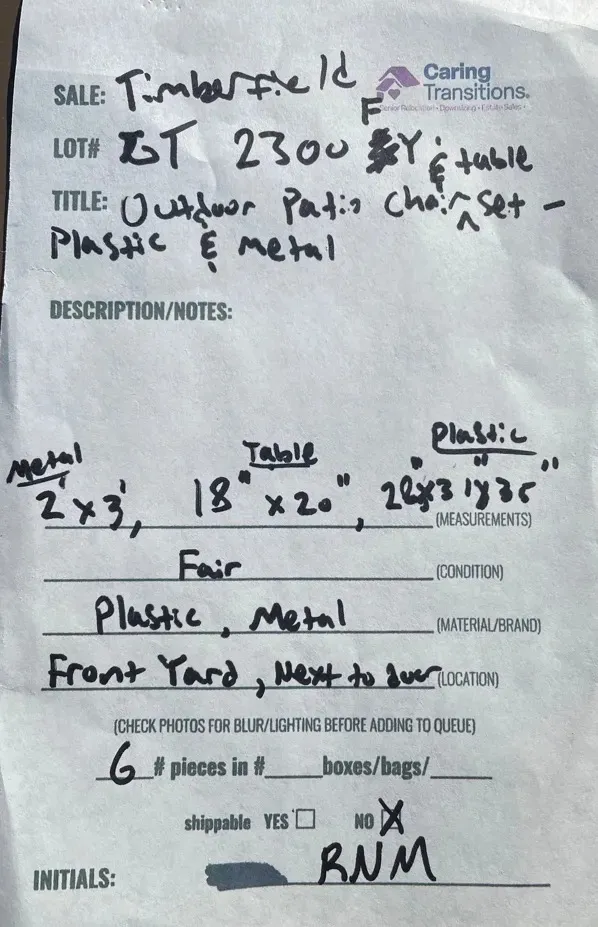 Caring
Transitions®
Senior Relocation • Downsizing • Estate Sales •
SALE: Timberfield
LOT# GT 2300 FY
TITLE: Outdoor Patio Chair & table Set -
Plastic & Metal
DESCRIPTION/NOTES:
Metal Table Plastic
2' x 3', 18" x 20", x 31" x (MEASUREMENTS)
Fair (CONDITION)
Plastic, Metal (MATERIAL/BRAND)
Front Yard, Next to door (LOCATION)
(CHECK PHOTOS FOR BLUR/LIGHTING BEFORE ADDING TO QUEUE)
6 # pieces in # boxes/bags/
shippable YES NO X
INITIALS: RNM